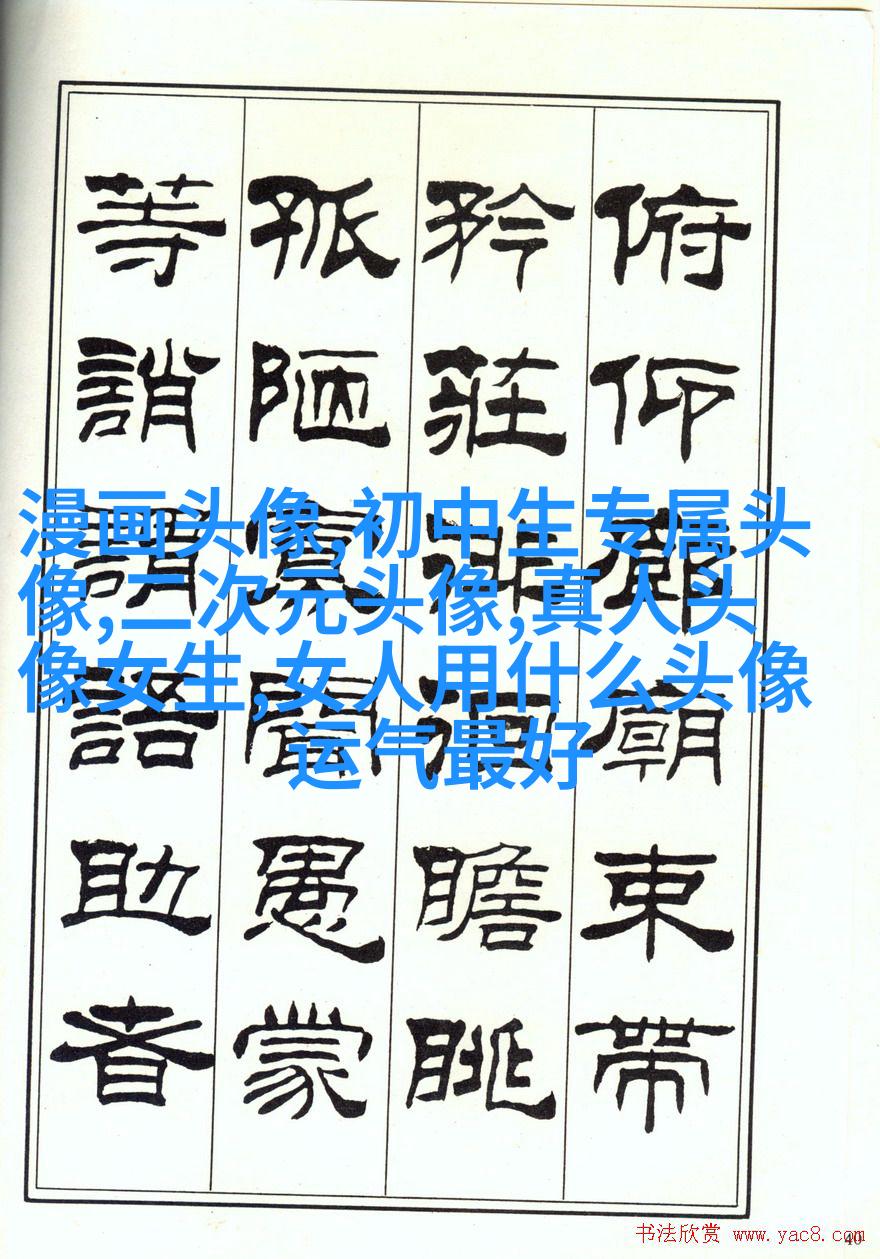 漫画头像,初中生专属头
像,二次元头像,真人头
像女生,女人用什么头像
运气最好
俯仰廊廟束帶
矜莊徘徊瞻眺
孤陋寡聞愚蒙
等誚謂語助者
书法欣赏 www.yac8.com
40